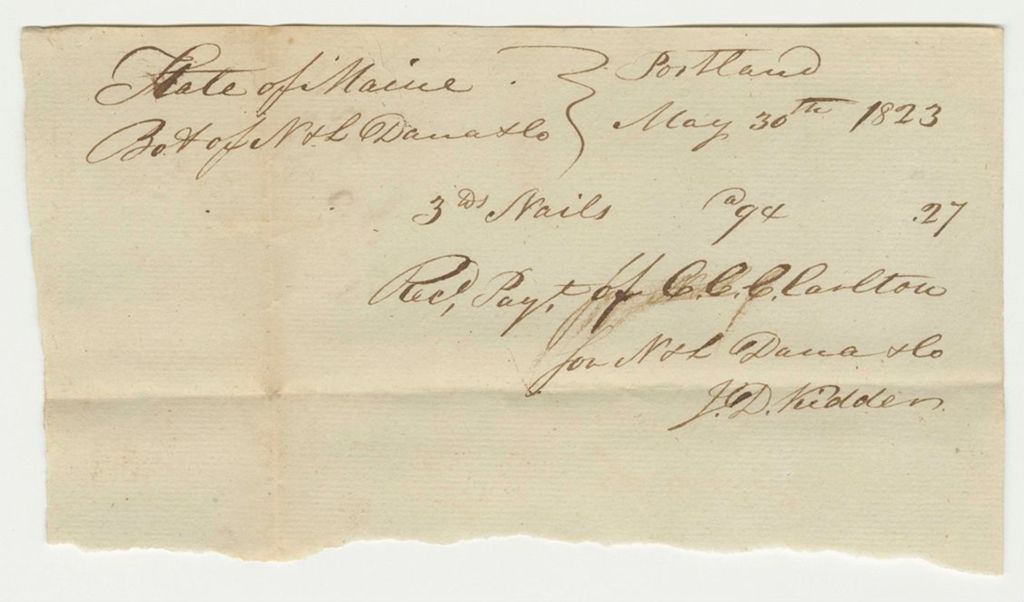 State of Maine Portland
Bot of N & L Dana & Co May 30th 1823
3 lbs Nails @ 9¢ .27
Recd, Payt, of C. C. Carlton
for N & L Dana & Co
J. D. Kidder.